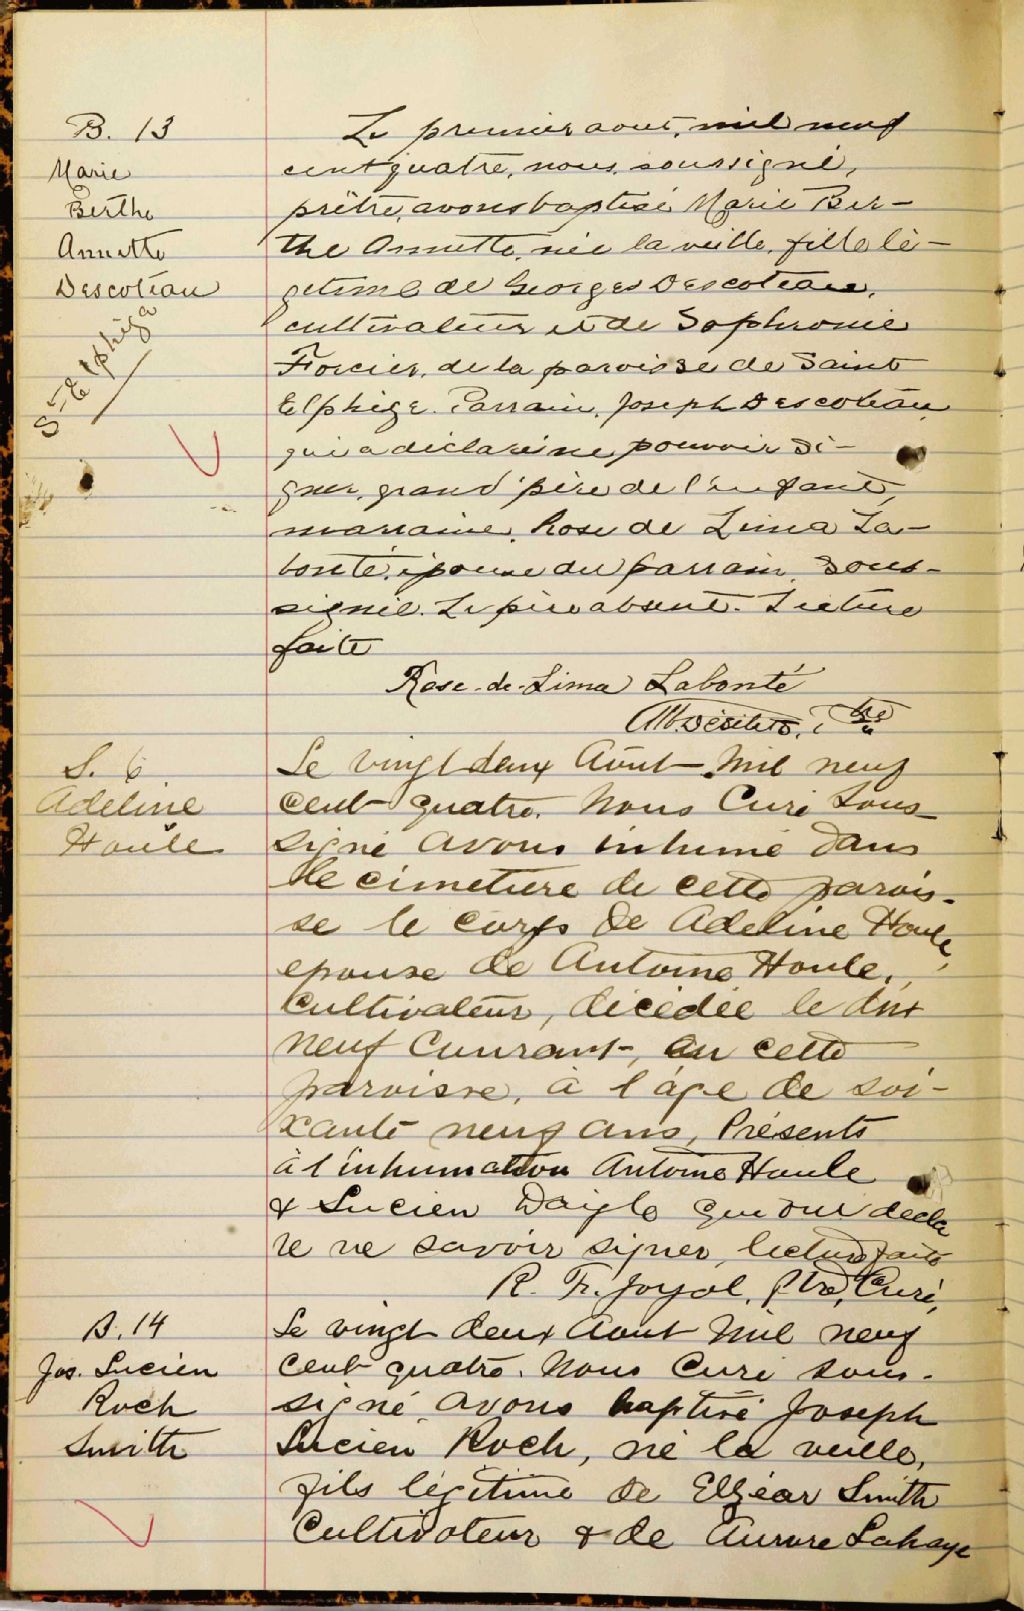 B. 13
Marie
Berthe
Annette
Descoteau
St-Elphège
Le premier aout, mil neuf
cent quatre, nous, soussigné,
prêtre, avons baptisé Marie Ber-
the Annette, née la veille, fille lé-
getime de Georges Descoteau,
cultivateur et de Sophronie
Forcier, de la paroisse de Saint
Elphège. Parrain, Joseph Descoteau
qui a déclaré ne pouvoir si-
gner, grand'père de l'enfant,
marraine, Rose de Lima La-
bonté, épouse du parrain, sous-
signée. Le père absent. Lecture
faite
Rose-de-Lima Labonté
Ptre
S. 6
Adeline
Houle
Le vingt deux Août Mil neuf
cent quatre. Nous Curé Sous-
signé avons inhumé dans
le cimetière de cette parois-
se le corps de Adeline Houle,
epouse de Antoine Houle,
Cultivateur, décédée le dix
neuf Courant, en cette
paroisse, à l'âge de soi-
xante neuf ans, Présents
à l'inhumation Antoine Houle
& Lucien Daigle qui ont décla
ré ne savoir signer, lecture faite
R. Fr. Joyal, Ptre, Curé,
B. 14
Jos. Lucien
Roch
Smith
Le vingt deux Aout Mil neuf
Cent quatre. Nous Curé sous-
signé avons baptisé Joseph
Lucien Roch, né la veille,
fils légitime de Elzéar Smith
Cultivateur & de Aurore Lahaye